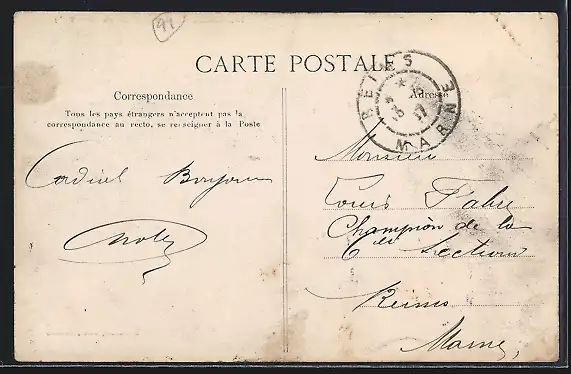 91
CARTE POSTALE
Correspondance
Tous les pays étrangers n'acceptent pas la
correspondance au recto, se renseigner à la Poste
Adresse
REIMS
MARNE
Cordial Bonjour
Monsieur
Louis Fabre
Champion de la
6e Section
Reims
Marne